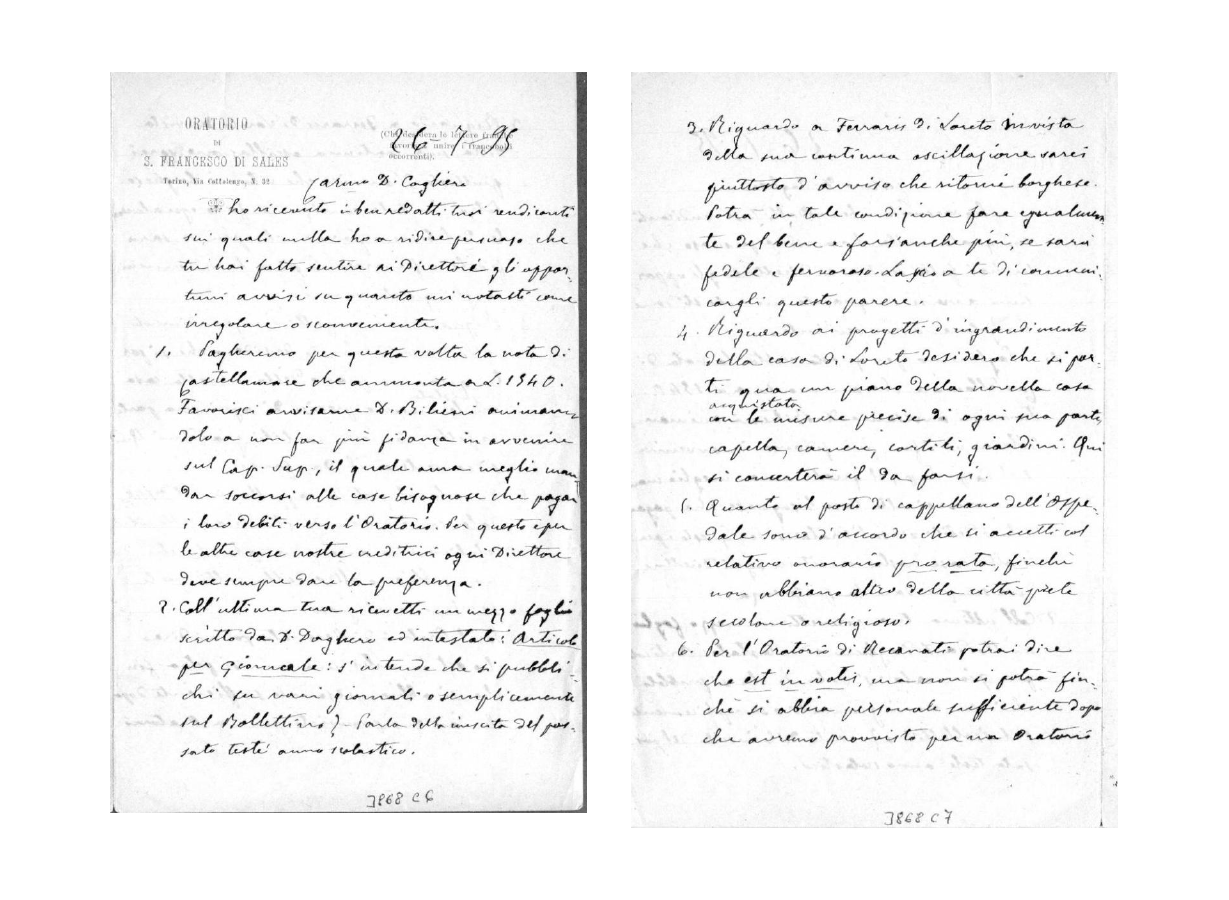 ORATORIO
DI
S. FRANCESCO DI SALES
Torino, Via Cottolengo, N. 32
(Chi desidera lo lettere
favorisca unire i francobolli
occorrenti).
26-7-95
Carmo D. Cagliero
ho ricevuto i ben redatti tuoi rendiconti
sui quali nulla ho a ridire persuaso che
tu hai fatto sentire ai Direttori gli oppor-
tuni avvisi su quanto mi notasti come
irregolare o sconveniente.
1. Pagheremo per questa volta la nota di
Castellamare che ammonta a L. 1940.
Favorisci avvisarne D. Bilieni animan-
dolo a non far più fidanza in avvenire
sul Cap. Sup., il quale ama meglio man-
dar soccorsi alle case bisognose che pagar
i loro debiti verso l'Oratorio. Per questo e per
le altre case nostre creditrici ogni Direttore
deve sempre dare la preferenza.
2. Coll'ultima tua ricevetti un mezzo foglio
scritto da D. Daghero ed intestato: Articolo
per giornale: s'intende che si pubbli-
chi su vari giornali o semplicemente
sul Bollettino? - Parla della riuscita del pas-
sato testè anno scolastico.
J868 C6
3. Riguardo a Ferraris di Loreto in vista
della sua continua oscillazione sarei
piuttosto d'avviso che ritorni borghese.
Potrà in tale condizione fare egualmen-
te del bene e fors'anche più, se sarà
fedele e fervoroso. Lascio a te di comuni-
cargli questo parere.
4. Riguardo ai progetti d'ingrandimento
della casa di Loreto desidero che si por-
ti qua un piano della novella casa
acquistata
con le misure precise di ogni sua parte,
capella, camere, cortili, giardini. Qui
si concerterà il da farsi.
5. Quanto al posto di cappellano dell'Ospe-
dale sono d'accordo che si accetti col
relativo onorario pro rata, finchè
non abbiano altro della città prete
secolare o religioso.
6. Per l'Oratorio di Recanati potrai dire
che est in votis, ma non si potrà fin-
chè si abbia personale sufficiente dopo
che avremo provvisto per un Oratorio
J868 C7